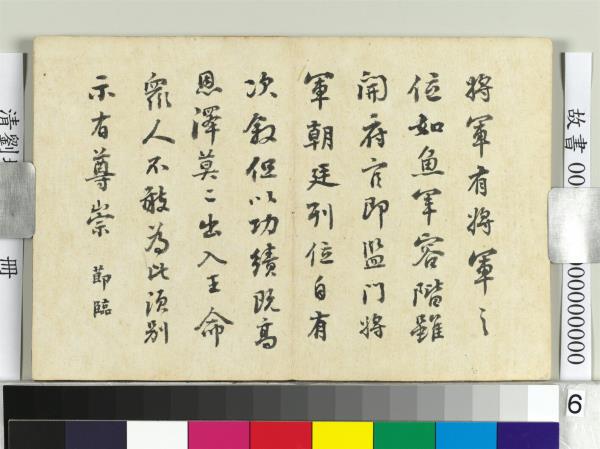 將軍有將軍之
位如魚軍容階雖
開府官即監門將
軍朝廷列位自有
次叙但以功績既高
恩澤莫二出入王命
眾人不敢為比須別
示有尊崇 節臨
故書
000000000
清劉
冊
6